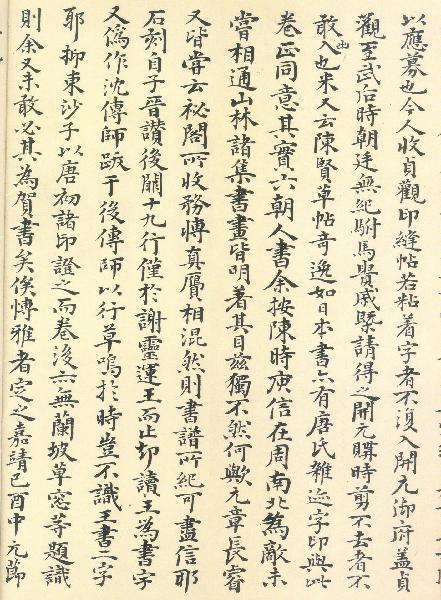 以應募也今人收貞觀印縫帖若粘着字者不復入開元御府蓋貞
觀至武后時朝廷無紀駙馬貴戚槩請得之開元購時剪不去者不
敢入也米又云陳賢草帖奇逸如日本書亦有唐氏雜迹字印與此
卷正同意其實六朝人書余按陳時庾信在周南北為敵未
嘗相通山林諸集書畫皆明着其目茲獨不然何歟元章長睿
又皆嘗云祕閣所收務博真贋相混然則書譜所紀可盡信耶
石刻自子晉讚後闕十九行僅於謝靈運王而止却讀王為書字
又偽作沈傳師跋于後傳師以行草鳴於時豈不識王書二字
耶抑東沙子以唐初諸印證之而卷後亦無蘭坡草窓等題識
則余又未敢必其為賀書矣俟博雅者定之嘉靖己酉中元節